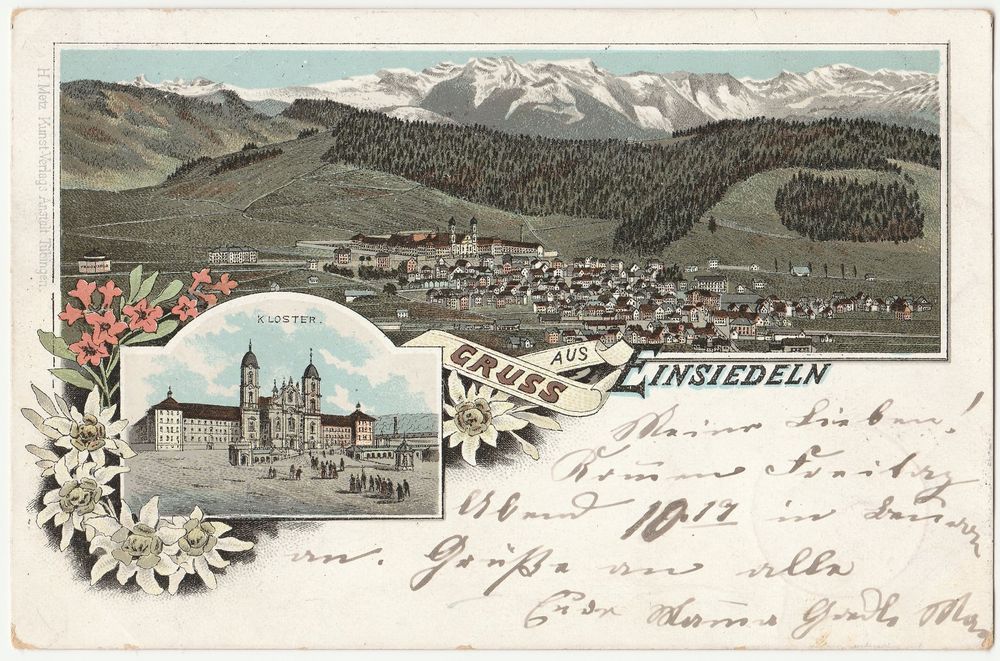 H. Metz, Kunst-Verlags-Anstalt, Tübingen.
KLOSTER.
GRUSS AUS EINSIEDELN
Meine Lieben!
Kommen Freitag
Abend 10.17 in
an. Grüße an alle
Eure Mama